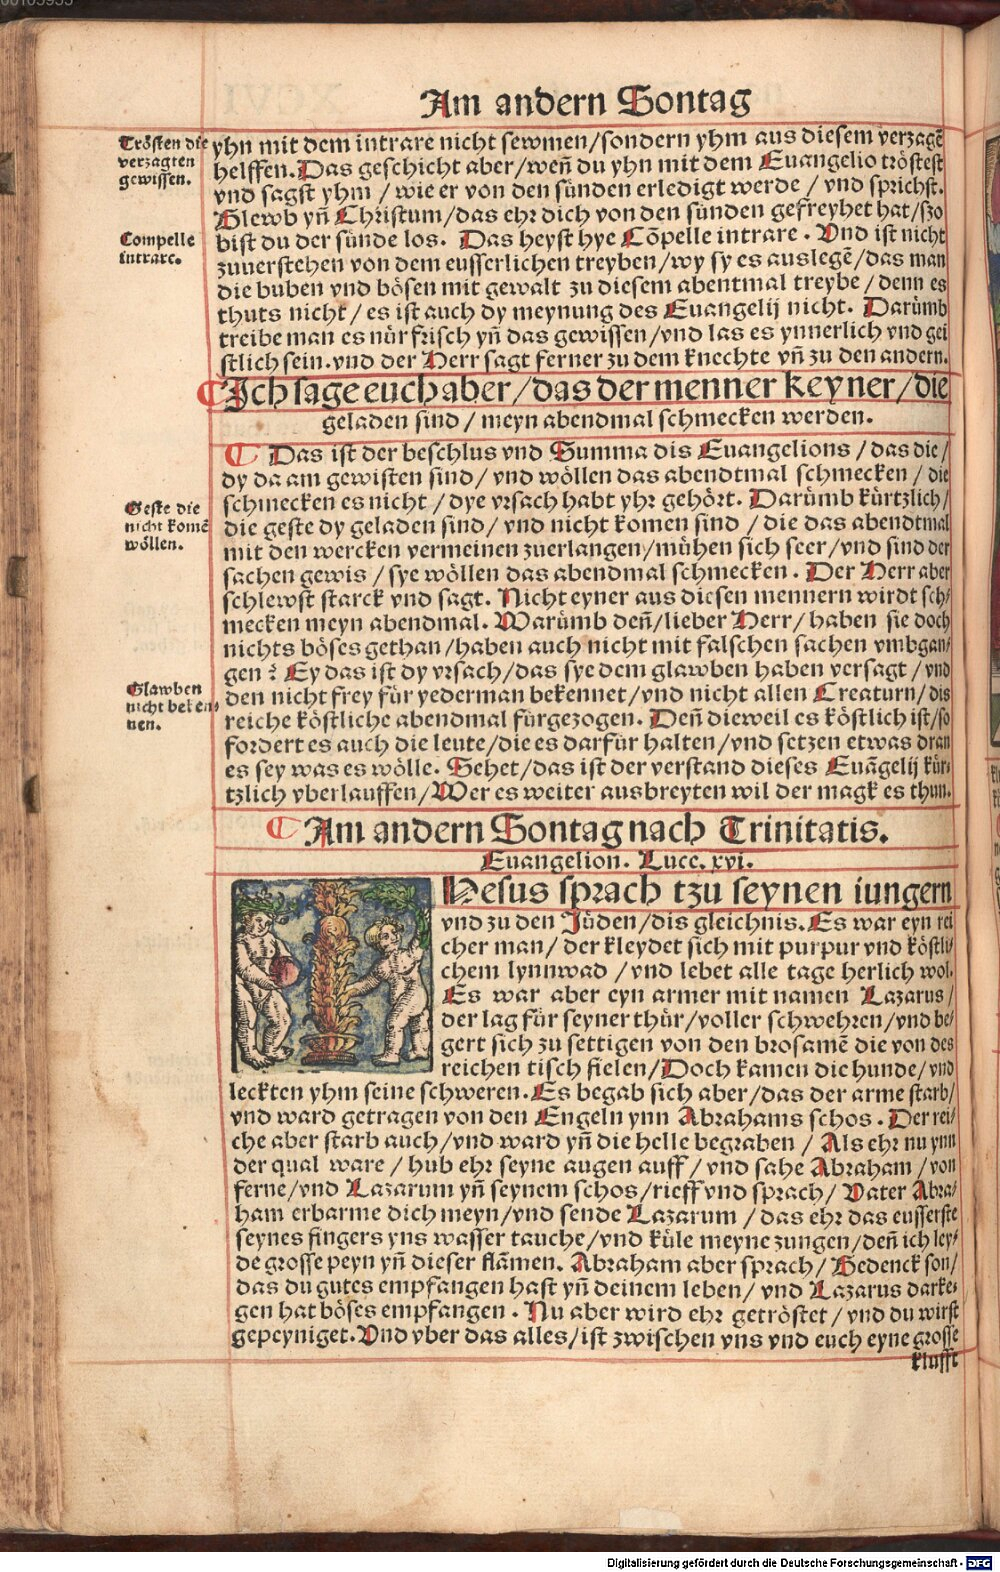 Am andern Sontag
Trösten die
verzagten
gewissen.
yhn mit dem intrare nicht sewmen/sondern yhm aus diesem verzagē
helffen. Das geschicht aber/weñ du yhn mit dem Euangelio tröstest
vnd sagst yhm / wie er von den sünden erledigt werde / vnd sprichst.
Glewb yñ Christum/das ehr dich von den sünden gefreyhet hat/szo
Compelle
intrare.
bist du der sünde los. Das heyst hye Cōpelle intrare . Vnd ist nicht
zuuerstehen von dem eusserlichen treyben/wy sy es auslegē/das man
die buben vnd bösen mit gewalt zu diesem abentmal treybe / denn es
thuts nicht / es ist auch dy meynung des Euangelij nicht. Darümb
treibe man es nür frisch yñ das gewissen/vnd las es ynnerlich vnd gei
stlich sein.vnd der Herr sagt ferner zu dem knechte vñ zu den andern.
Ich sage euch aber/das der menner keyner/die
geladen sind / meyn abendmal schmecken werden.
Das ist der beschlus vnd Summa dis Euangelions / das die/
dy da am gewisten sind/ vnd wöllen das abendtmal schmecken / die
Geste die
nicht komē
wöllen.
schmecken es nicht / dye vrsach habt yhr gehört. Darümb kürtzlich/
die geste dy geladen sind / vnd nicht komen sind / die das abendtmal
mit den wercken vermeinen zuerlangen/mühen sich seer/vnd sind der
sachen gewis / sye wöllen das abendmal schmecken . Der Herr aber
schlewst starck vnd sagt. Nicht eyner aus diesen mennern wirdt sch/
mecken meyn abendmal. Warümb deñ/lieber Herr/ haben sie doch
nichts böses gethan/haben auch nicht mit falschen sachen vmbgan/
gen ? Ey das ist dy vrsach/das sye dem glawben haben versagt / vnd
Glawben
nicht beken/
nen.
den nicht frey für yederman bekennet/vnd nicht allen Creaturn/ dis
reiche köstliche abendmal fürgezogen. Deñ dieweil es köstlich ist/so
fordert es auch die leute/die es darfür halten/vnd setzen etwas dran
es sey was es wölle. Sehet/das ist der verstand dieses Euāgelij kür/
tzlich vberlauffen/Wer es weiter ausbreyten wil der magk es thun.
Am andern Sontag nach Trinitatis.
Euangelion. Luce. xvi.
Hesus sprach tzu seynen iungern
vnd zu den Jüden/dis gleichnis. Es war eyn rei
cher man/ der kleydet sich mit purpur vnd köstli/
chem lynnwad / vnd lebet alle tage herlich wol.
Es war aber eyn armer mit namen Lazarus/
der lag für seyner thür/voller schwehren/vnd be/
gert sich zu settigen von den brosamē die von des
reichen tisch fielen/Doch kamen die hunde/vnd
leckten yhm seine schweren. Es begab sich aber/das der arme starb/
vnd ward getragen von den Engeln ynn Abrahams schos . Der rei/
che aber starb auch/vnd ward yñ die helle begraben / Als ehr nu ynn
der qual ware / hub ehr seyne augen auff / vnd sahe Abraham / von
ferne/vnd Lazarum yñ seynem schos/rieff vnd sprach/ Vater Abra/
ham erbarme dich meyn/vnd sende Lazarum / das ehr das eusserste
seynes fingers yns wasser tauche/vnd küle meyne zungen/deñ ich ley/
de grosse peyn yñ dieser flāmen. Abraham aber sprach/ Gedenck son/
das du gutes empfangen hast yñ deinem leben/ vnd Lazarus darke/
gen hat böses empfangen . Nu aber wird ehr getröstet / vnd du wirst
gepeyniget. Vnd vber das alles/ist zwischen vns vnd euch eyne grosse
klufft
Digitalisierung gefördert durch die Deutsche Forschungsgemeinschaft - DFG